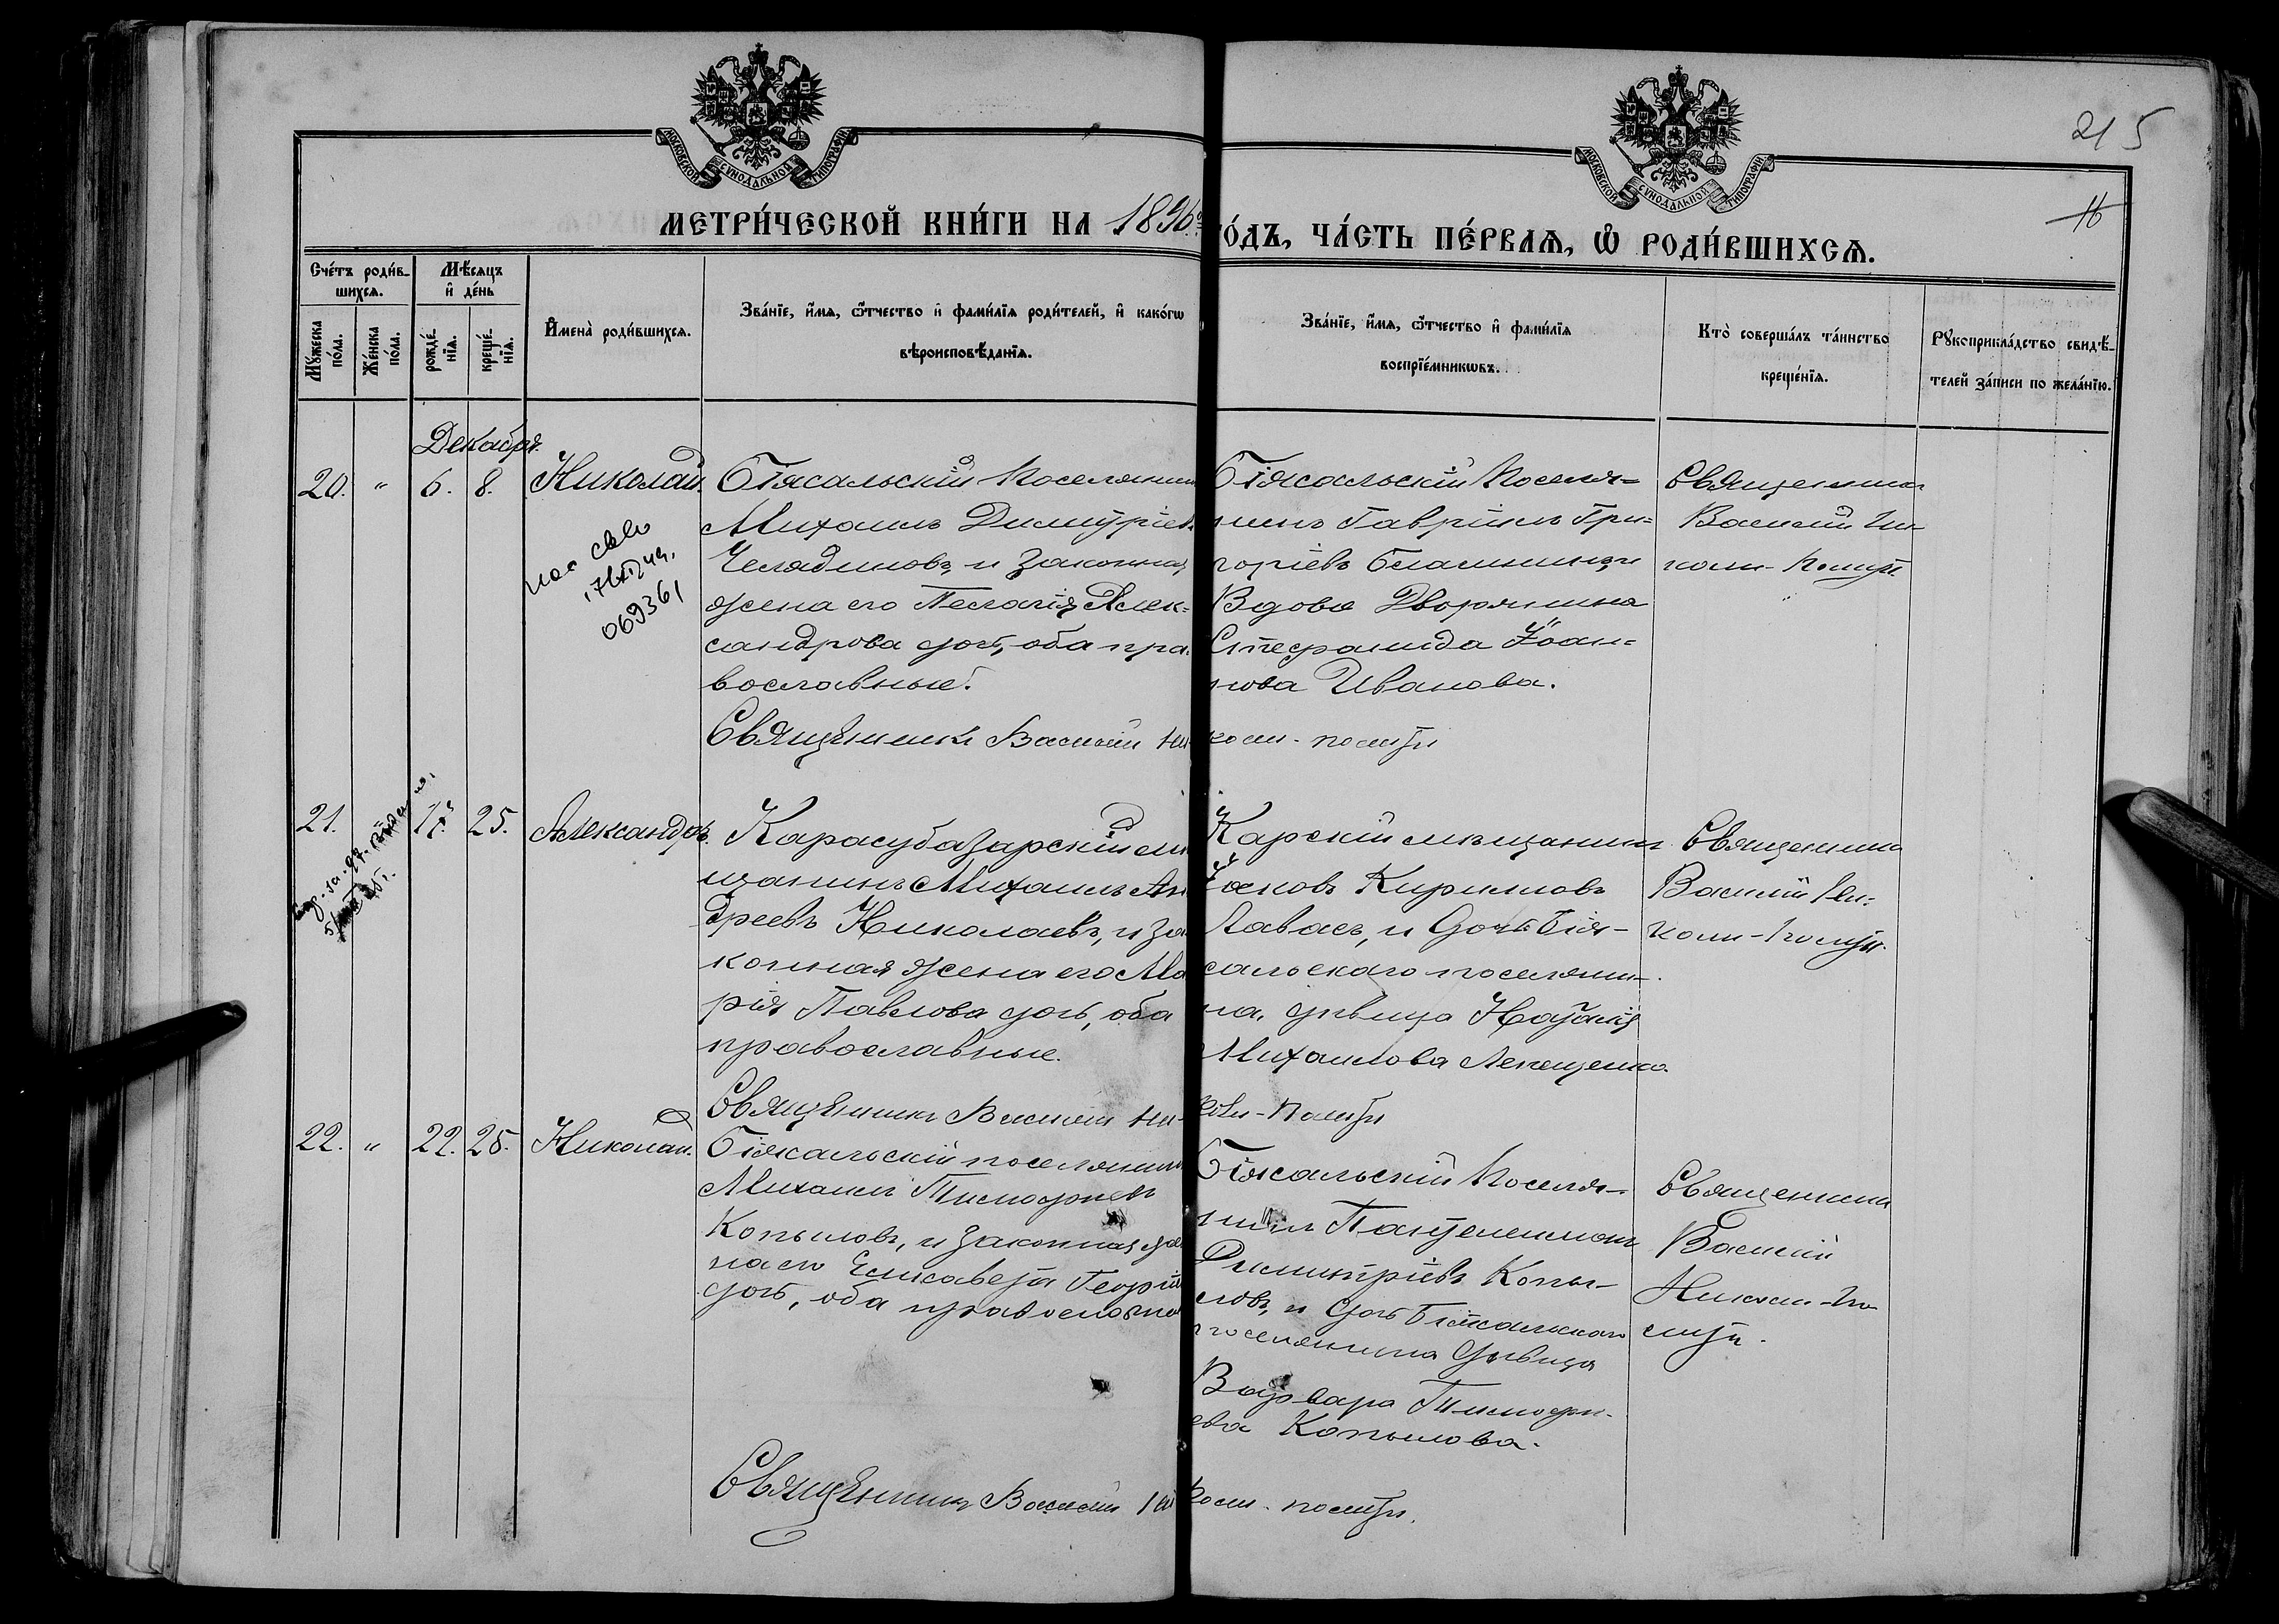 МОСКОВСКОЙ СѴНОДАЛЬНОЙ ТИПОГРАФІИ
МОСКОВСКОЙ СѴНОДАЛЬНОЙ ТИПОГРАФІИ
215
16
МЕТРИ́ЧЕСКОЙ КНИ́ГИ НА 1896
ГО́ДЪ, ЧА́СТЬ ПЕ́РВАѦ, Ѡ РОДИ́ВШИХСѦ.
Сче́тъ роди́в-
шихсѧ.
Мѣ́сѧцъ
и де́нь
Мꙋ́жеска
по́ла.
Же́нска
по́ла.
рожде́-
нїѧ.
креще́-
нїѧ.
Имена̀ роди́вшихсѧ.
Зва́нїе, и́мѧ, ѻ́тчество и фами́лїѧ роди́телей, и како́гѡ
вѣроисповѣ́данїѧ.
Зва́нїе, и́мѧ, ѻ́тчество и фами́лїѧ
воспрїе́мникѡвъ.
Кто̀ соверша́лъ та́инство
креще́нїѧ.
Рꙋкоприкла́дство свидѣ́-
телей за́писи по жела́нїю.
Декабря.
20. " 6. 8. Николай.
Біясальскій поселянин
Михаилъ Димитріев
Челядиновъ, и законная
жена его Пелагія Алек-
сандрова дочь, оба пра-
вославные.
Священникъ Василій Ни
069361
Біясальскій поселя-
нинъ Гавріилъ Гри-
горіевъ
Вдова Дворянина
Стефанида Іоан-
нова Иванова.
коли-
Священникъ
Василій Ни
коли-
21. 17. 25. Александръ.
Карасубазарскій мѣ
щанинъ Михаилъ Ан
дреевъ Николаевъ, и за
конная жена его Ма
рія Павлова дочь, оба
православные.
Священникъ Василій Ни-
Карскій мѣщанинъ
Іаковъ Кирилловъ
Лавасъ, и дочь Бія-
сальскаго поселяни-
на, дѣвица Наталія
Михаилова
коли-
Священникъ
Василій Ни-
коли-
22. " 22. 25. Николай.
Біясальскій поселянинъ
Михаилъ Тимофеевъ
Копыловъ, и законная же
на его Елисавета Георгіе
дочь, оба православные
Священникъ Василій Ни
Біясальскій поселя-
нинъ Пантелеимонъ
Димитріевъ Копы-
ловъ, и дочь Біясальскаго
поселянина дѣвица
Варвара Тимофе-
ева Копылова.
коли-
Священникъ
Василій
Николи-По